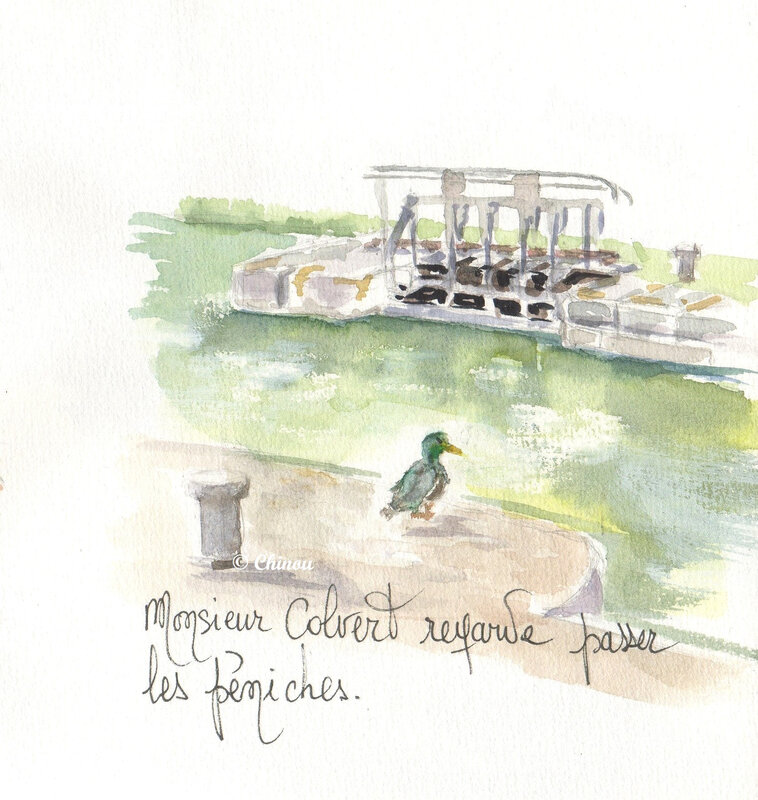 © Chinou
Monsieur Colvert regarde passer
les péniches.